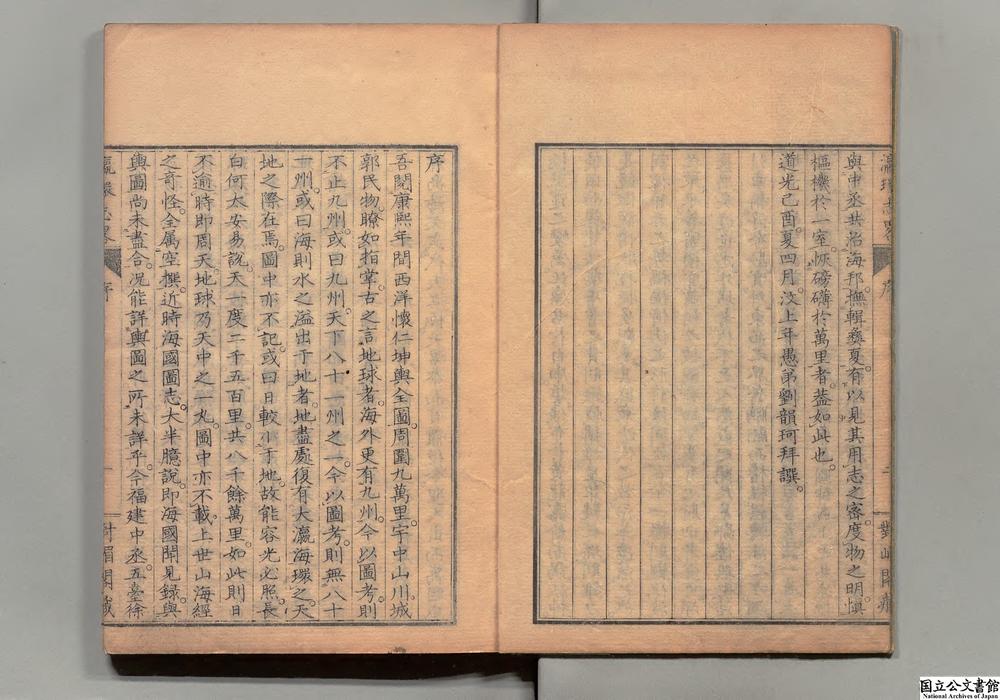 與中丞共治海邦撫輯彝夏有以見其用志之密度物之明愼
樞機於一室恢磅礡於萬里者蓋如此也
道光己酉夏四月汶上年愚弟劉韻珂拜譔
序
吾閱康熙年閒西洋懷仁坤輿全圖周圍九萬里宇中山川城
郭民物瞭如指掌古之言地球者海外更有九州今以圖考則
不止九州或曰九州天下八十一州之一今以圖考則無八十
一州或曰海則水之溢出于地者地盡處復有大瀛海環之天
地之際在焉圖中亦不記或曰日較小于地故能容光必照長
白何太安易說天一度二千五百里共八千餘萬里如此則日
不逾時卽周天地球乃天中之一丸圖中亦不載上世山海經
之奇怪全屬空撰近時海國圖志大半臆說卽海國聞見錄與
輿圖尚未盡合况能詳輿圖之所未詳乎今福建中丞五臺徐
序
二
國立公文書館
National Archives of Japan